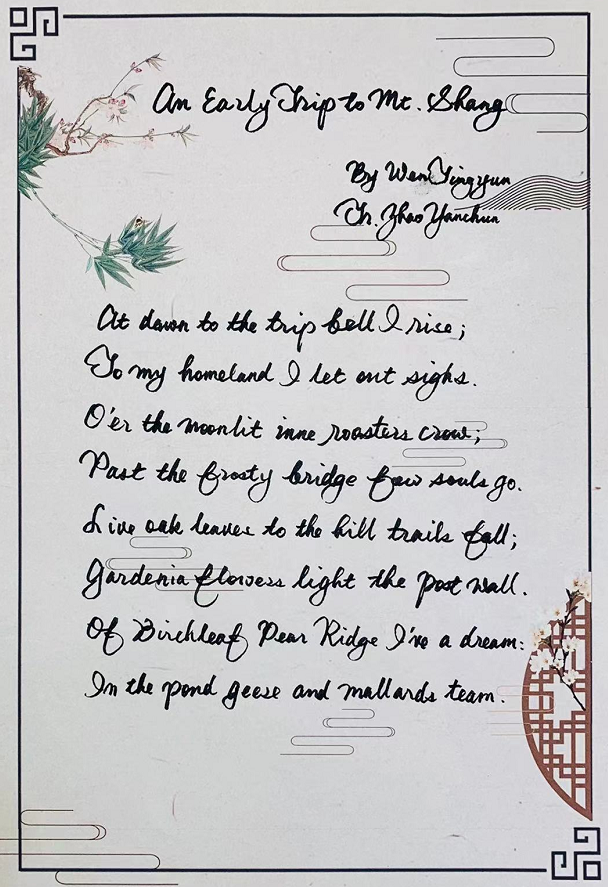 An Early Trip to Mt. Shang
By Wen Tingyun
Tr. Zhao Yanchun
At dawn to the trip bell I rise;
To my homeland I let out sighs.
O'er the moonlit inne roasters crow;
Past the frosty bridge few souls go.
Live oak leaves to the hill trails fall;
Gardenia flowers light the post wall.
Of Birchleaf Pear Ridge I've a dream:
In the pond geese and mallards team.